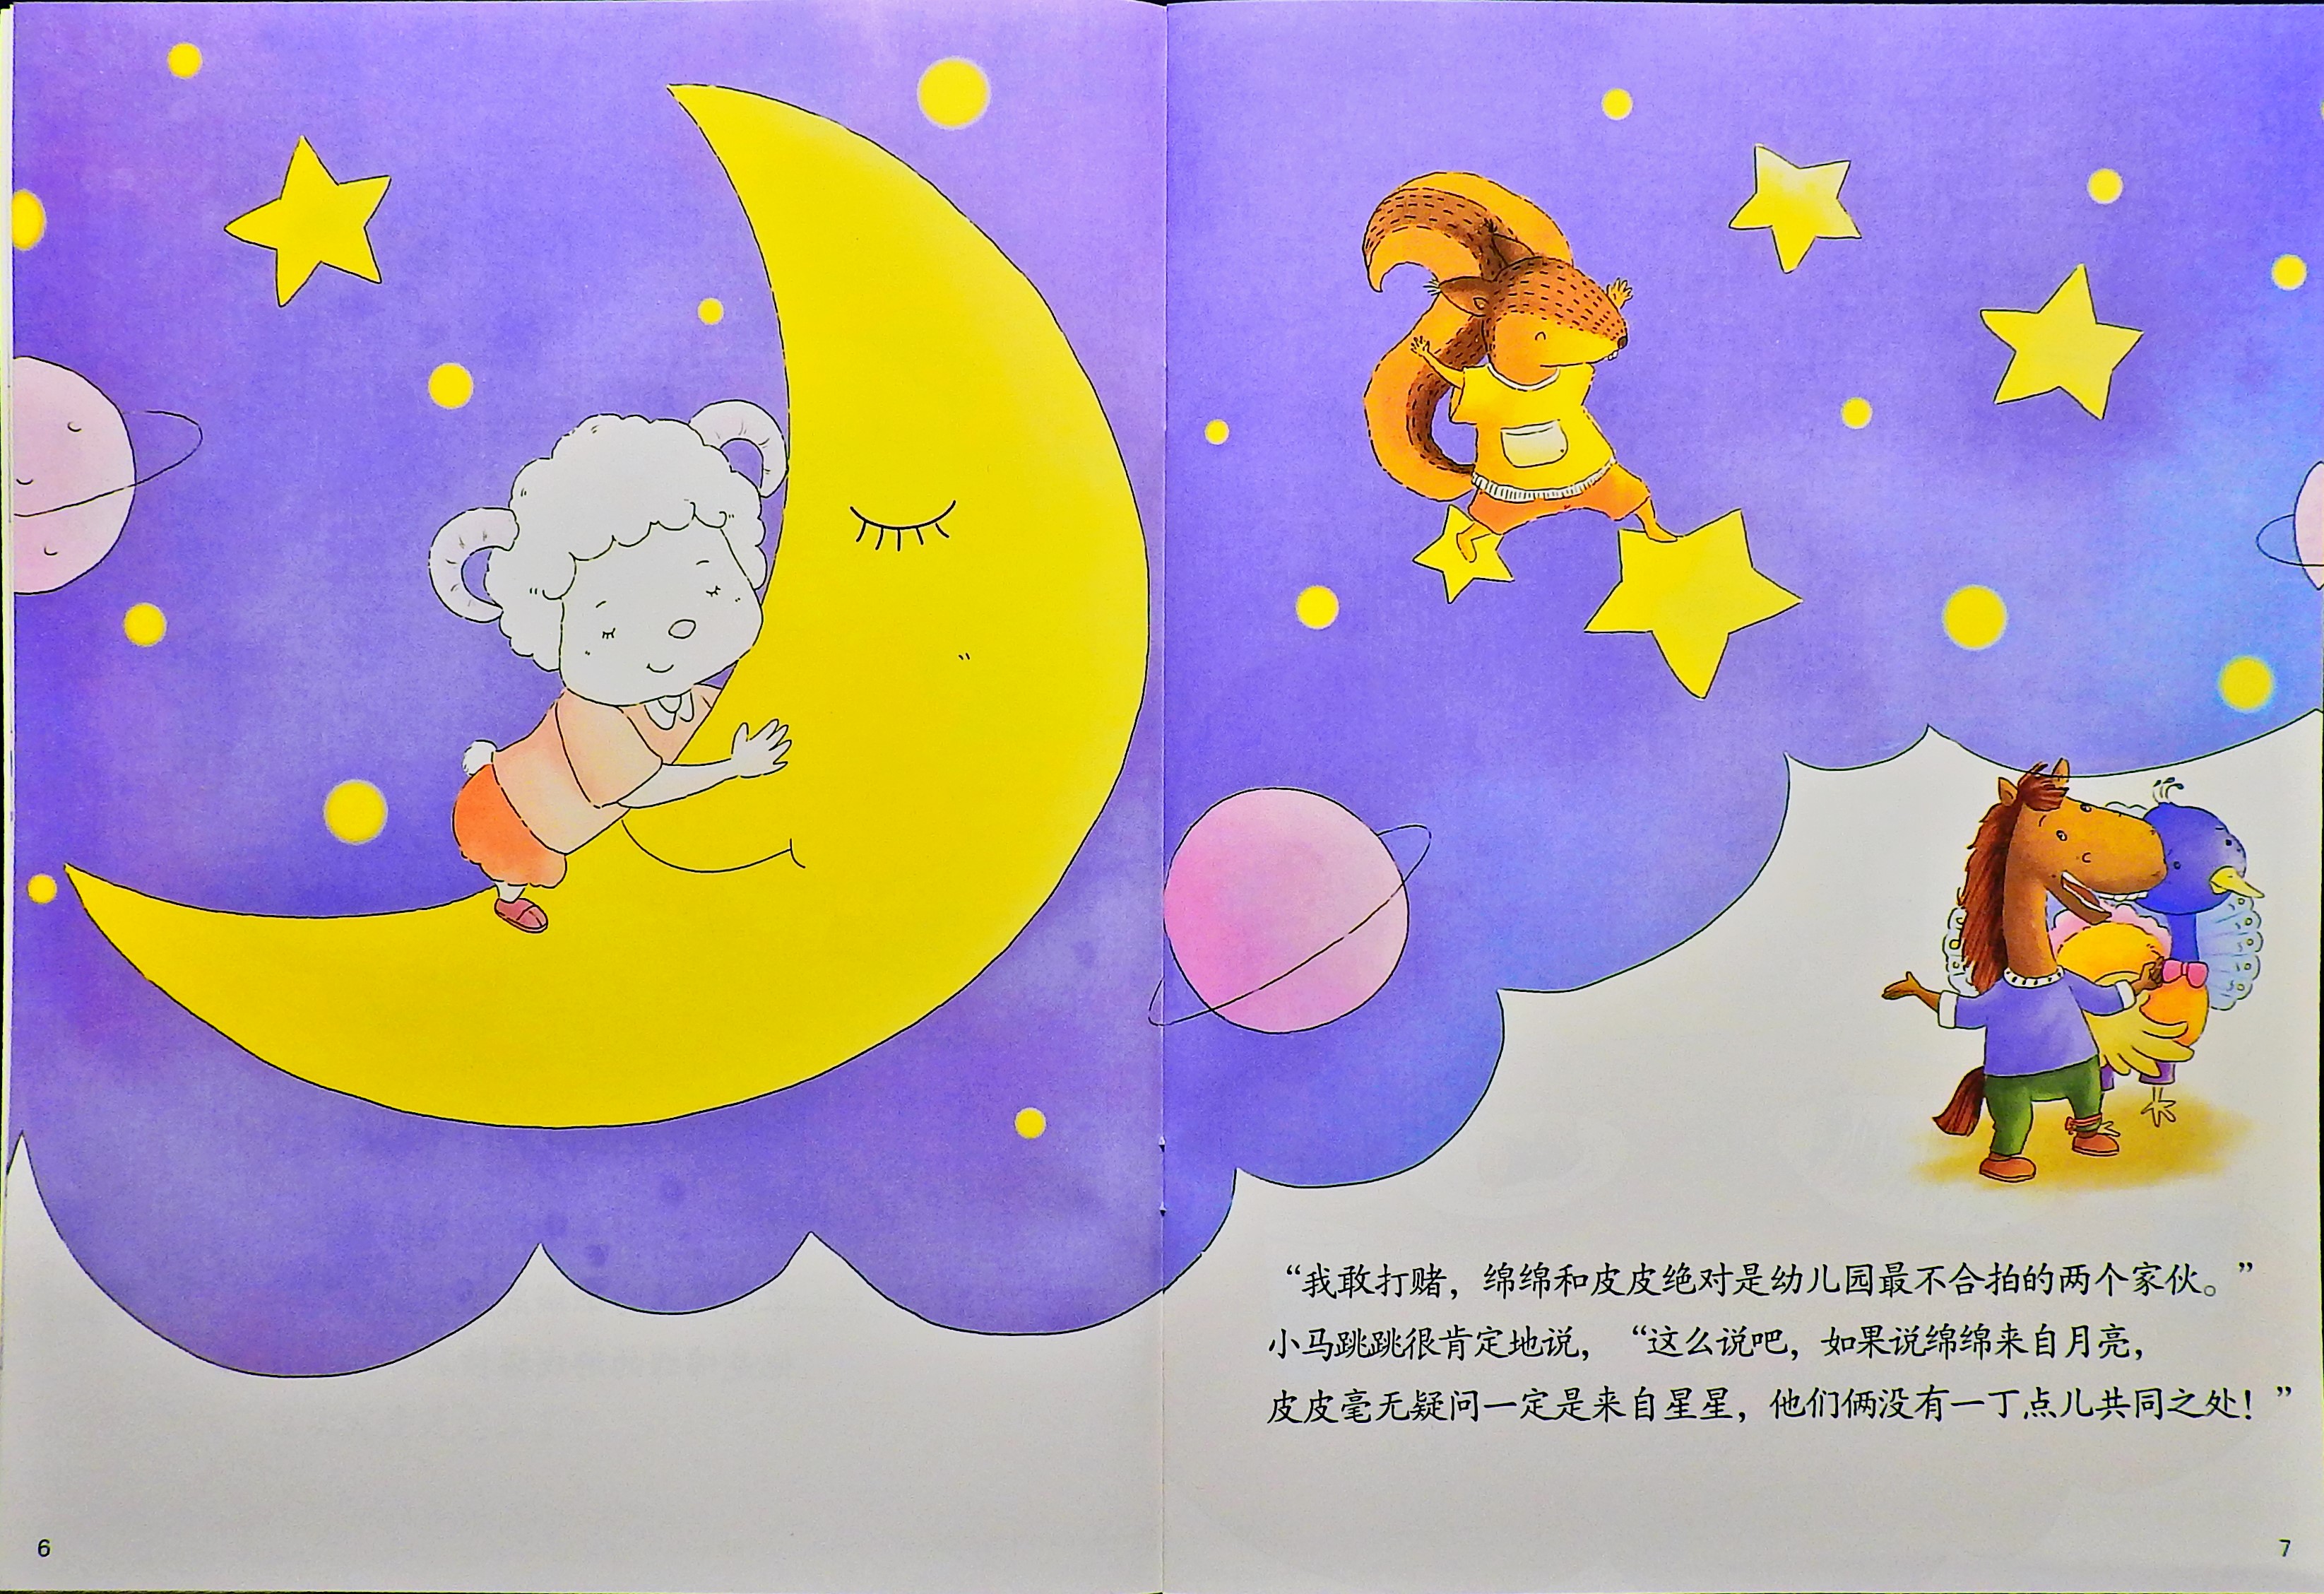 “我敢打赌，绵绵和皮皮绝对是幼儿园最不合拍的两个家伙。”
小马跳跳很肯定地说，“这么说吧，如果说绵绵来自月亮，
皮皮毫无疑问一定是来自星星，他们俩没有一丁点儿共同之处！”
6
7